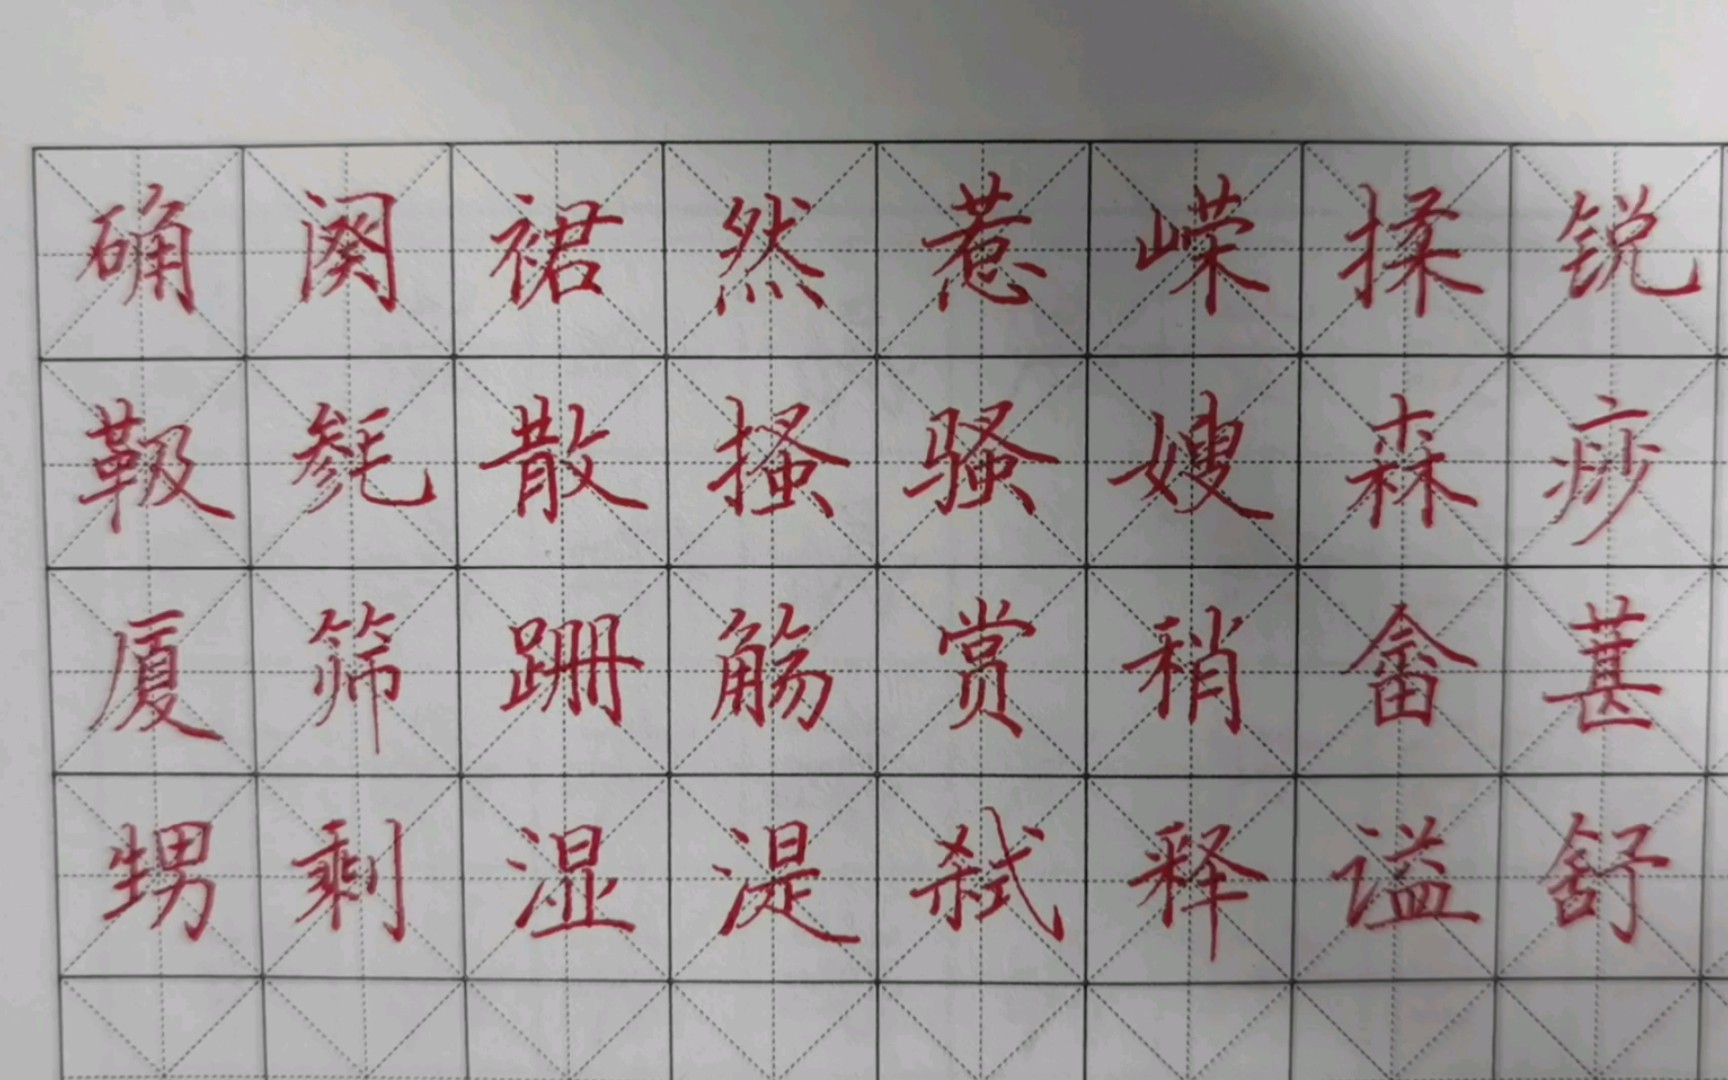 确阕裙然惹嵘揉锐
靸毵散搔骚嫂森痧
厦筛跚觞赏稍畬葚
甥剩湿湜弑释谥舒